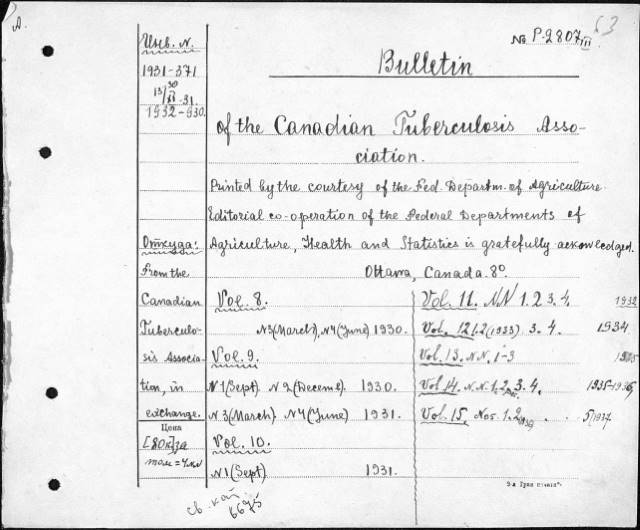 A.
63
№ P-2807/III
Инв. N.
1931-371
1932-930.
Bulletin
of the Canadian Tuberculosis Asso-
ciation.
Printed by the courtesy of the Fed. Departm. of Agriculture.
Editorial co-operation of the Federal Departments of
Agriculture, Health and Statistics is gratefully acknowledged.
Ottawa, Canada. 8º.
Откуда:
From the
Canadian
Tuberculo-
sis Associa-
tion, in
exchange.
Цена
[80к] за
том = 4 кн
Vol. 8.
N3 (March), N4 (June) 1930.
Vol. 9.
N1 (Sept) N2 (Decemb) 1930.
N.3 (March) N4 (June) 1931.
Vol. 10.
N1 (Sept) 1931.
Vol. 11. NN 1. 2 3. 4. 1932
Vol. 12 1.2 (1933) 3. 4. 1934
Vol. 13. N.N. 1-3 1935
Vol. 14. N.N. 1. 2, 3. 4. 1935-1936
Vol. 15. Nos. 1. 2
св. кат
6675